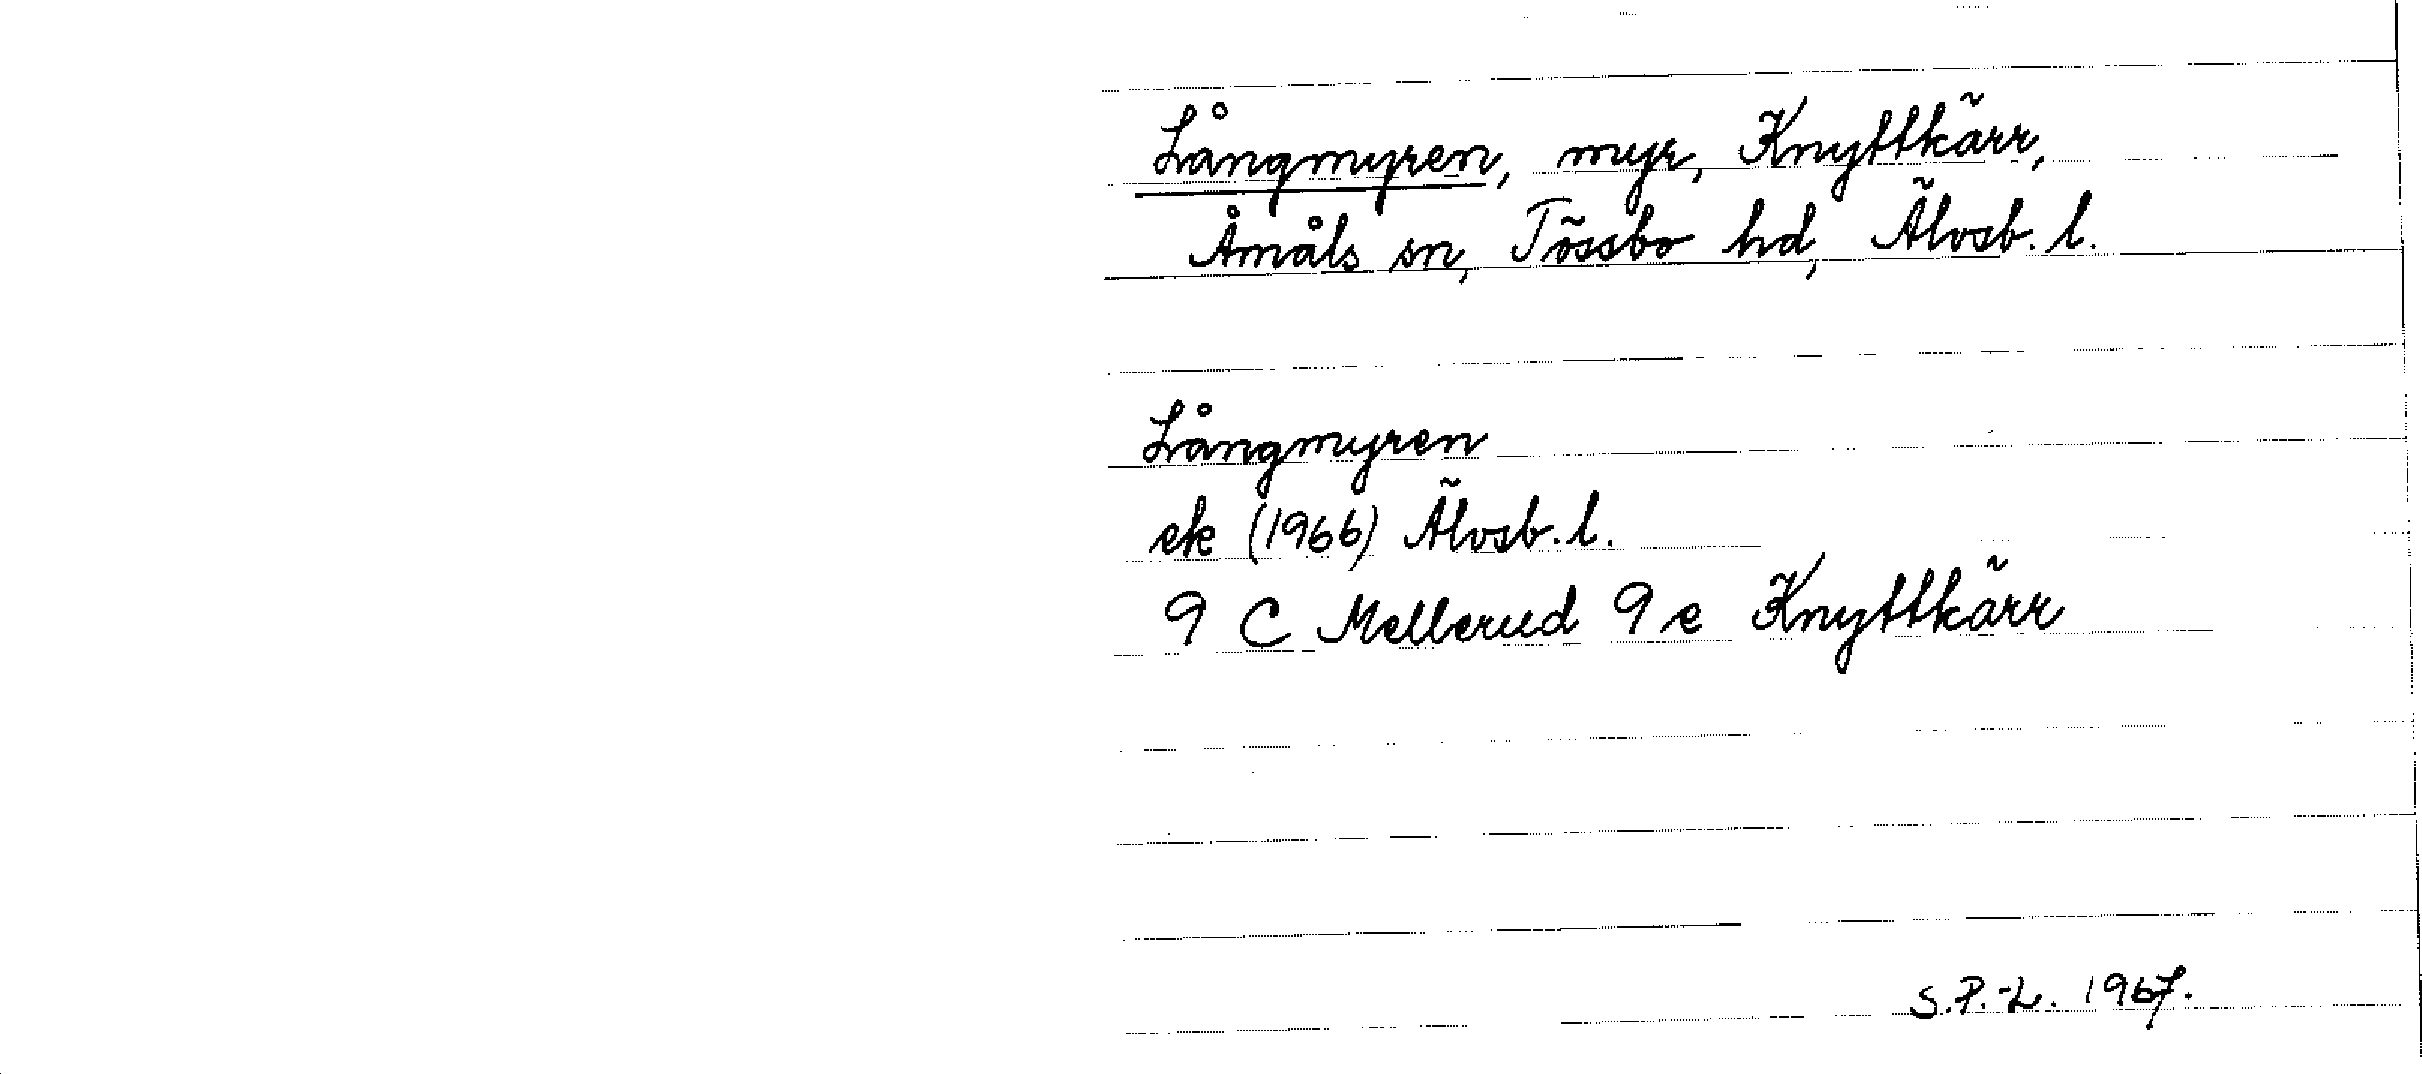 Långmyren, myr, Knyttkärr,
Åmåls sn, Tössbo hd, Älvsb. l.
Långmyren
ek (1966) Älvsb. l.
9 C Mellerud 9 e Knyttkärr
S.P.-L. 1967.